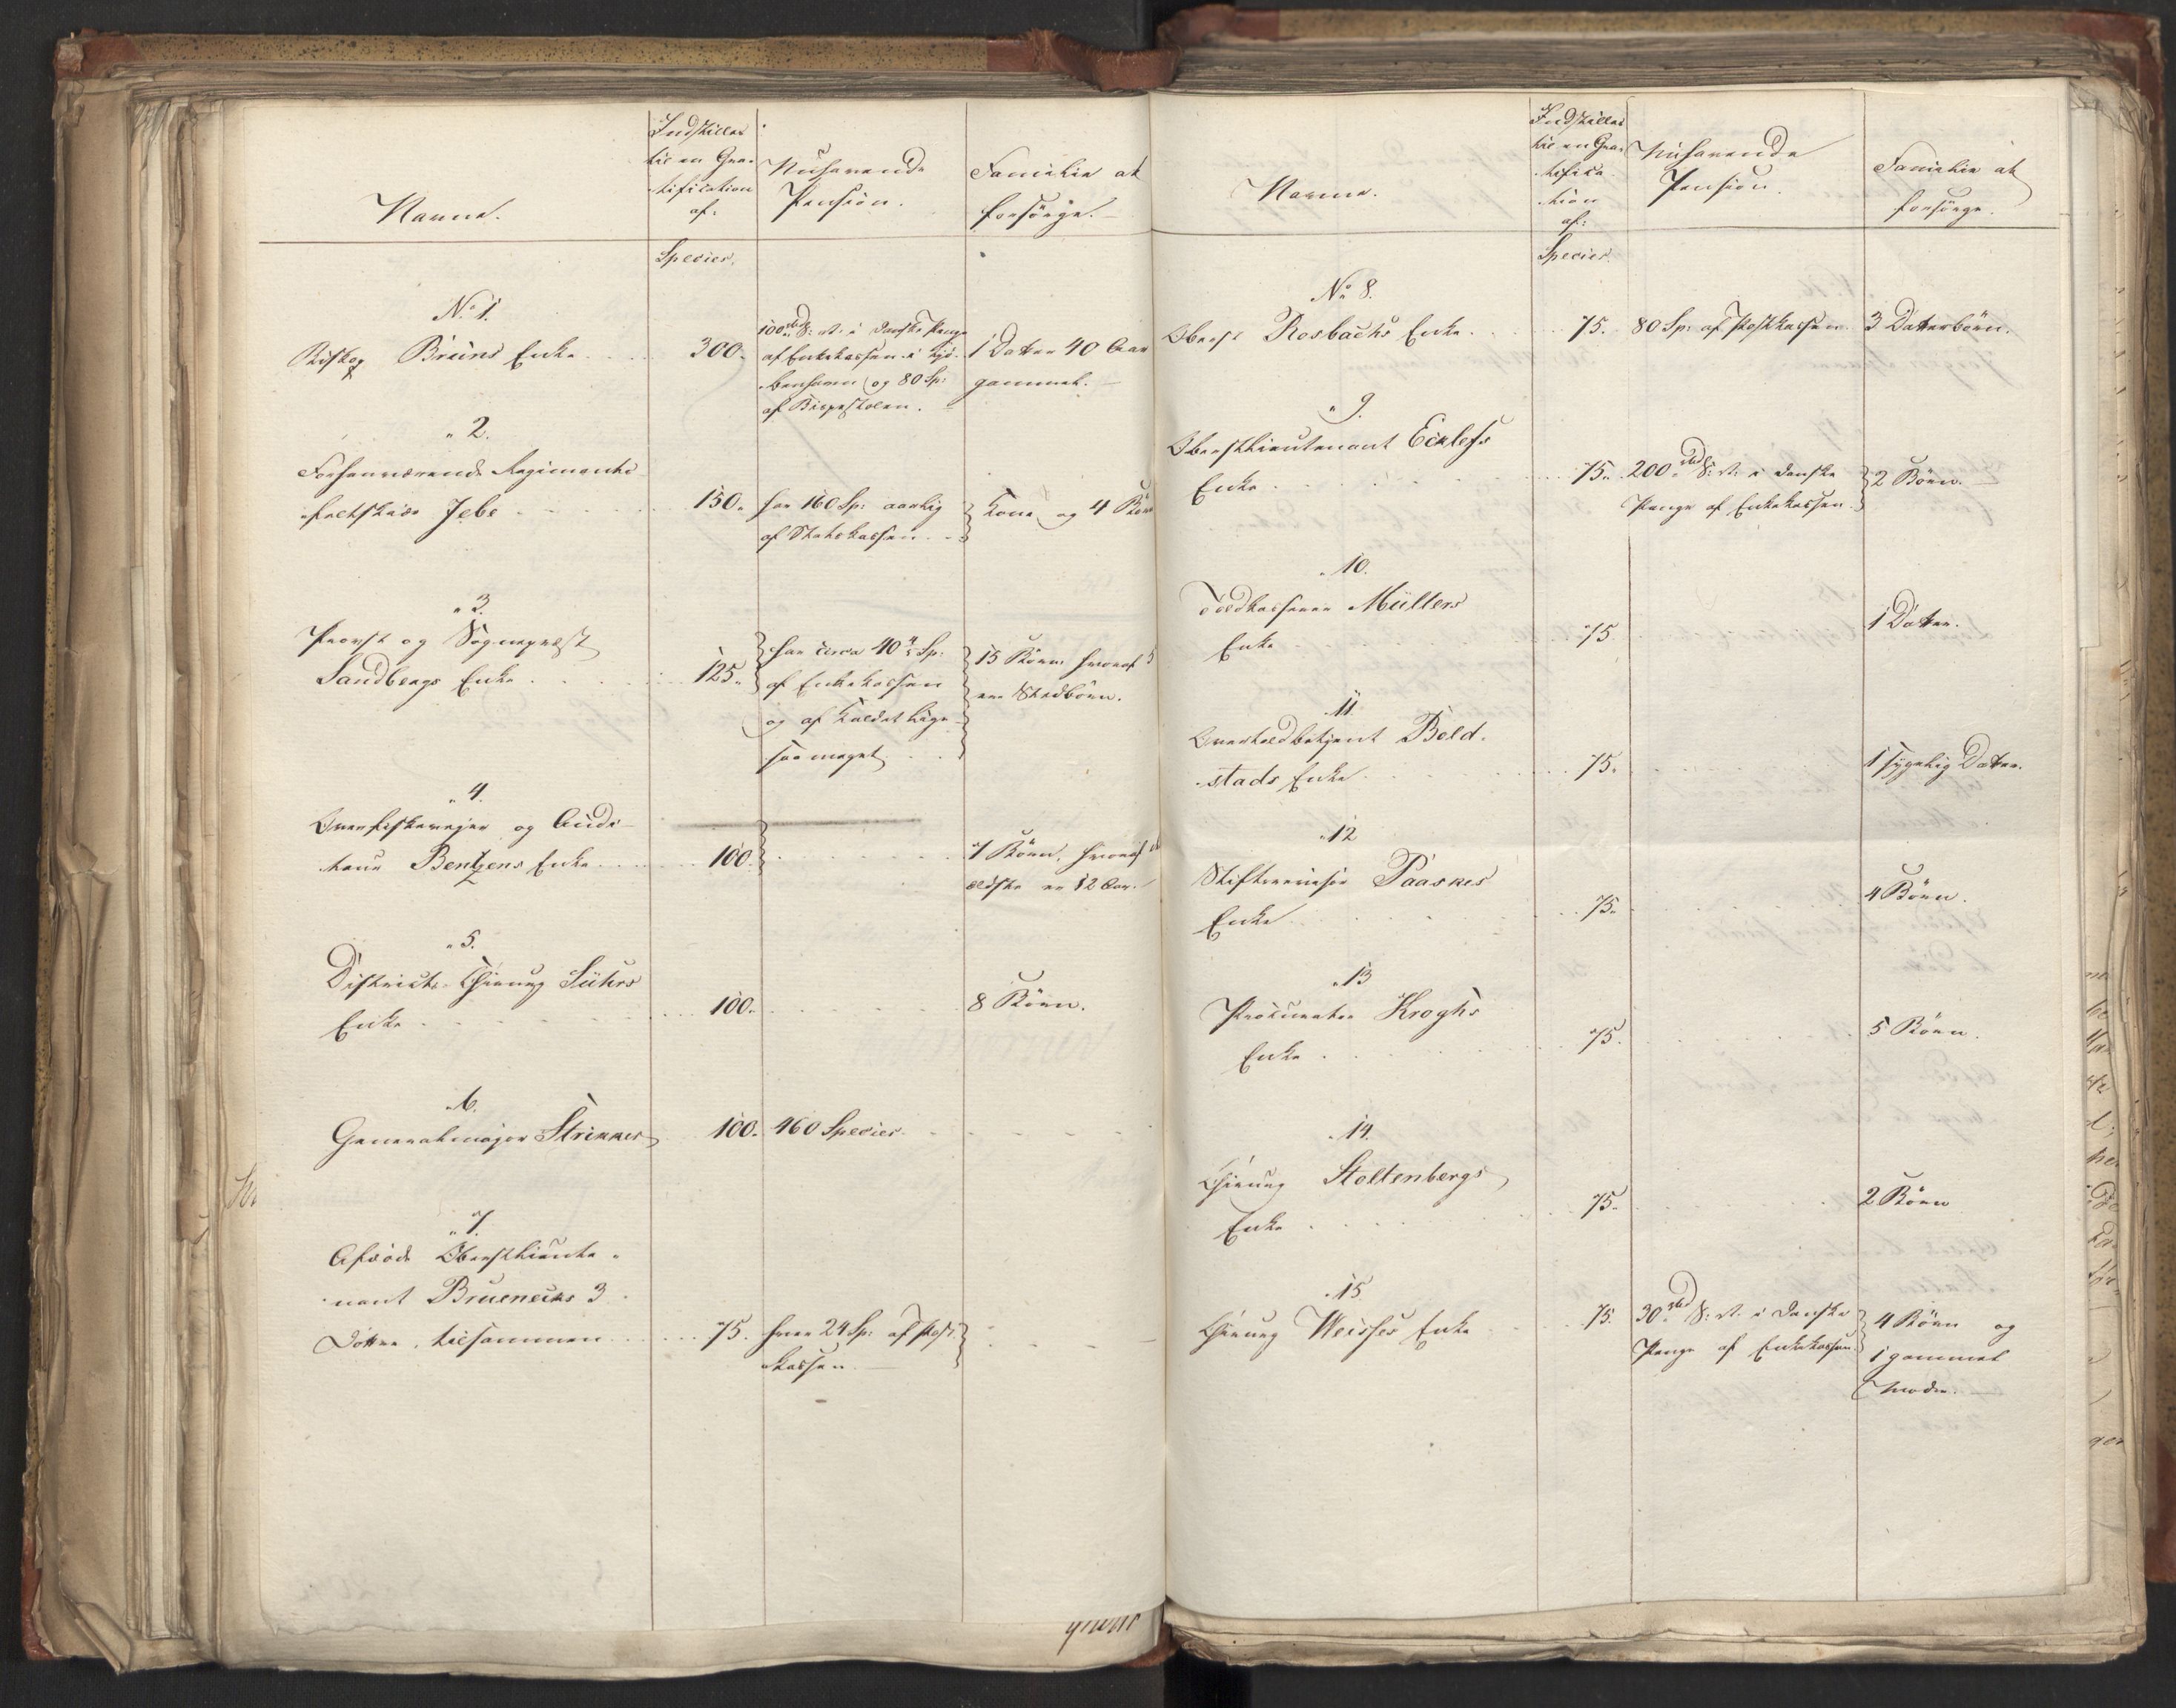 Indstilles
til en Gra-
tification
af:
Nuhavende
Pension.
Familie at
forsørge.
Navne.
Species.
No 1.
Biskop Bruns Enke
300.
100 rbd S: v. i danske Penge
af Enkekassen i Kjø-
benhavn og 80 Sp:
af Bispestolen.
1 Datter 40 Aar
gammel.
" 2.
Forhenværende Regiments-
feltskiær Jebe
150.
har 160 Sp: aarlig
af Statskassen.
Kone og 4 Børn
" 3.
Provst og Sognepræst
Sandbergs Enke
125.
har circa 40 Sp:
af Enkekassen
og af Kaldet lige-
saa meget
15 Børn hvoraf 5
ere Stedbørn.
" 4.
Overfiskevrager og Audi-
teur Bentzens Enke
100.
7 Børn, hvoraf
ældste er 12 Aar.
" 5.
Districts-Chirurg Sührs
Enke
100.
8 Børn.
" 6.
Generalmajor Strickers
100.
460 Species.
" 7.
Afdøde Oberstlieute-
nant Bruenechs 3
Døttre, tilsammen
75.
hver 24 Sp: af Post-
kassen.
Navne.
Indstilles
til en Gra-
tifica-
tion
af:
Nuhavende
Pension.
Familie at
forsørge.
Species.
No 8.
Oberst Rosbachs Enke.
75.
80 Sp: af Postkassen.
3 Datterbørn.
" 9.
Oberstlieutenant Eckleffs
Enke
75.
200 rbd S: v. i danske
Penge af Enkekassen.
2 Børn.
" 10.
Toldkasserer Müllers
Enke
75.
1 Datter.
" 11.
Overtoldbetjent Bold-
stads Enke
75.
1 sygelig Datter.
" 12
Stiftsrevisor Paaskes
Enke
75.
4 Børn.
" 13
Procurator Kroghs
Enke
75.
5 Børn.
" 14.
Chirurg Stoltenbergs
Enke
75.
2 Børn
" 15
Chirurg Weisses Enke
75.
30 rbd S: v. i danske
Penge af Enkekassen.
4 Børn og
1 gammel
Moder.